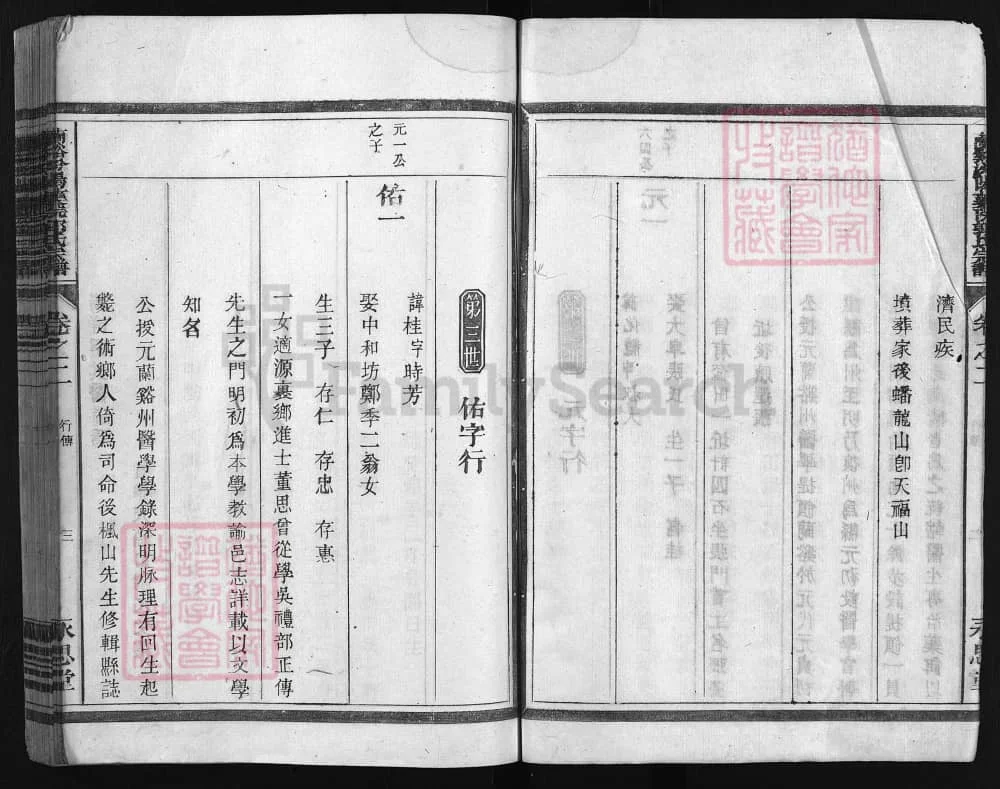 濟民疾
墳葬家後蟠龍山卽天福山
永思堂
第三世
佑字行
元一公
之子
佑一
諱桂字時芳
娶中和坊鄭季二翁女
生三子 存仁 存忠 存惠
一女適源裏鄉進士董思曾從學吳禮部正傳
先生之門明初爲本學教諭邑志詳載以文學
知名
公授元蘭谿州醫學學錄深明脉理有回生起
斃之術鄉人倚爲司命後楓山先生修輯縣誌
卷之二
行傳
三
永思堂
FamilySearch